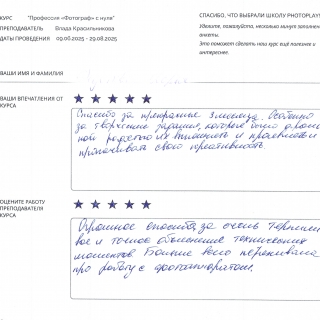 КУРС "Профессия «Фотограф с нуля"
ПРЕПОДАВАТЕЛЬ Влада Красильникова
ДАТЫ ПРОВЕДЕНИЯ 09.06.2025 - 29.08.2025
СПАСИБО, ЧТО ВЫБРАЛИ ШКОЛУ PHOTOPLAY
Уделите, пожалуйста, несколько минут заполнен
анкеты.
Это поможет сделать наш курс ещё полезнее и
интереснее.
ВАШИ ИМЯ И ФАМИЛИЯ
ВАШИ ВПЕЧАТЛЕНИЯ ОТ
КУРСА
Спасибо за прекрасные 3 месяца. Особенно
за творческие задания, которые было
радостью их выполнять и
прокачивать свою креативность.
ОЦЕНИТЕ РАБОТУ
ПРЕПОДАВАТЕЛЯ
КУРСА
Огромное спасибо за очень терпели
вое и точное объяснение технических
моментов. Больше всего переживала
про работу с фотоаппаратом.